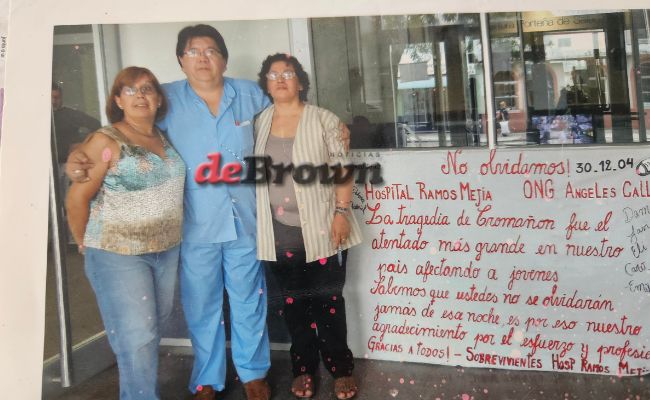 Porteña de
deBrown
NOTICIAS
No olvidamos! 30.12.04
HOSPITAL RAMOS MEJIA ONG ANGELES CALL
La tragedia de Cromañon fue el
atentado más grande en nuestro
pais afectando a jovenes
Sabemos que ustedes no se olvidarán
jamás de esa noche, es por eso nuestro
agradecimiento por el esfuerzo y profesio
GRACIAS A TODOS! - SOBREVIVIENTES HOSP RAMOS MEJI